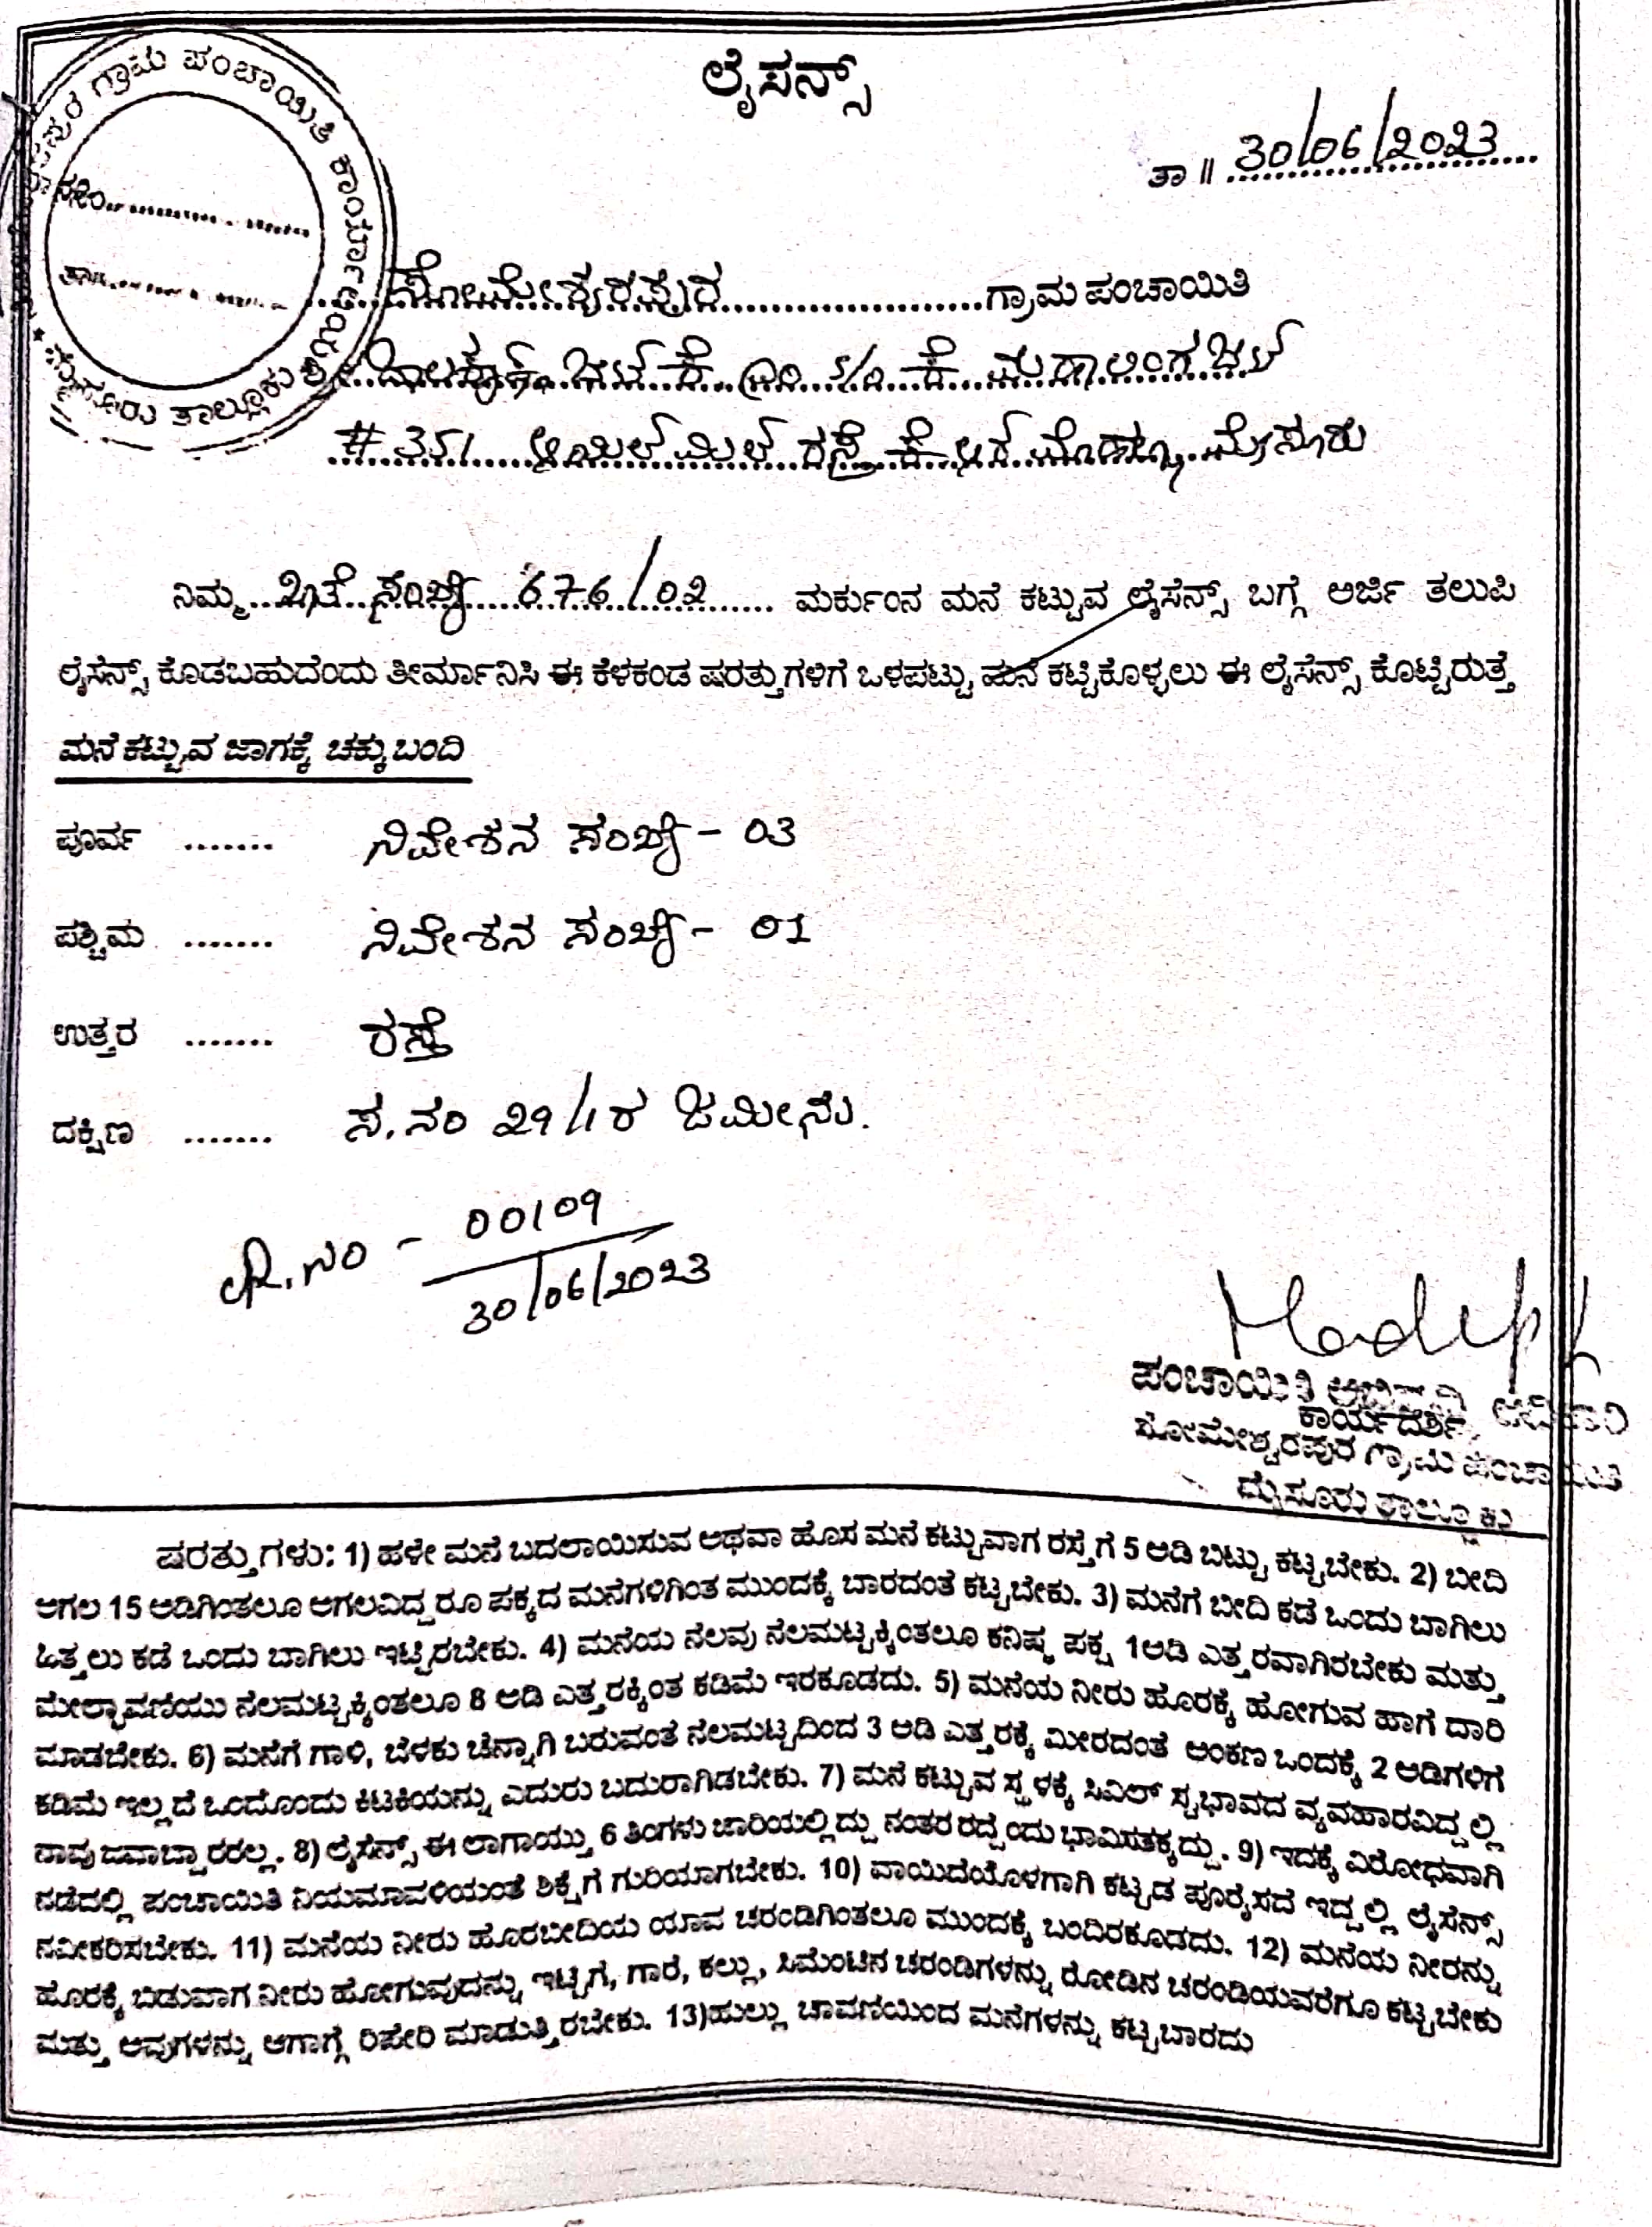 ಲೈಸನ್ಸ್
ತಾ॥ 30/06/2023
ಗ್ರಾಮ ಪಂಚಾಯಿತಿ ಕಾರ್ಯಾಲಯ
ಮೈಸೂರು ತಾಲ್ಲೂಕು
ನಂ
ತಾ
ಸೋಮೇಶ್ವರಪುರ ಗ್ರಾಮ ಪಂಚಾಯಿತಿ
ಶ್ರೀ ಭಟ್ ಕೆ ಎಂ S/o ಕೆ ಮಹಾಲಿಂಗ ಭಟ್
# 351 ಆಯಿಲ್ ಮಿಲ್ ರಸ್ತೆ ಮೈಸೂರು
ನಿಮ್ಮ ಖಾತೆ ಸಂಖ್ಯೆ 676/02 ಮರ್ಕುಂನ ಮನೆ ಕಟ್ಟುವ ಲೈಸೆನ್ಸ್ ಬಗ್ಗೆ ಅರ್ಜಿ ತಲುಪಿ
ಲೈಸೆನ್ಸ್ ಕೊಡಬಹುದೆಂದು ತೀರ್ಮಾನಿಸಿ ಈ ಕೆಳಕಂಡ ಷರತ್ತುಗಳಿಗೆ ಒಳಪಟ್ಟು ಮನೆ ಕಟ್ಟಿಕೊಳ್ಳಲು ಈ ಲೈಸೆನ್ಸ್ ಕೊಟ್ಟಿರುತ್ತೆ
ಮನೆ ಕಟ್ಟುವ ಜಾಗಕ್ಕೆ ಚಕ್ಕುಬಂದಿ
ಪೂರ್ವ ....... ನಿವೇಶನ ಸಂಖ್ಯೆ - 03
ಪಶ್ಚಿಮ ....... ನಿವೇಶನ ಸಂಖ್ಯೆ - 01
ಉತ್ತರ ....... ರಸ್ತೆ
ದಕ್ಷಿಣ ....... ಸ.ನಂ 29/1ರ ಜಮೀನು.
ನಂ - 00109
30/06/2023
ಪಂಚಾಯಿತಿ ಅಭಿವೃದ್ಧಿ ಅಧಿಕಾರಿ
ಕಾರ್ಯದರ್ಶಿ
ಸೋಮೇಶ್ವರಪುರ ಗ್ರಾಮ ಪಂಚಾಯಿತಿ
ಮೈಸೂರು ತಾಲ್ಲೂಕು
ಷರತ್ತುಗಳು: 1) ಹಳೇ ಮನೆ ಬದಲಾಯಿಸುವ ಅಥವಾ ಹೊಸ ಮನೆ ಕಟ್ಟುವಾಗ ರಸ್ತೆಗೆ 5 ಅಡಿ ಬಿಟ್ಟು ಕಟ್ಟಬೇಕು. 2) ಬೀದಿ
ಅಗಲ 15 ಅಡಿಗಿಂತಲೂ ಅಗಲವಿದ್ದರೂ ಪಕ್ಕದ ಮನೆಗಳಿಗಿಂತ ಮುಂದಕ್ಕೆ ಬಾರದಂತೆ ಕಟ್ಟಬೇಕು. 3) ಮನೆಗೆ ಬೀದಿ ಕಡೆ ಒಂದು ಬಾಗಿಲು
ಹಿತ್ತಲು ಕಡೆ ಒಂದು ಬಾಗಿಲು ಇಟ್ಟಿರಬೇಕು. 4) ಮನೆಯ ನೆಲವು ನೆಲಮಟ್ಟಕ್ಕಿಂತಲೂ ಕನಿಷ್ಠ ಪಕ್ಷ 1ಅಡಿ ಎತ್ತರವಾಗಿರಬೇಕು ಮತ್ತು
ಮೇಲ್ಛಾವಣಿಯು ನೆಲಮಟ್ಟಕ್ಕಿಂತಲೂ 8 ಅಡಿ ಎತ್ತರಕ್ಕಿಂತ ಕಡಿಮೆ ಇರಕೂಡದು. 5) ಮನೆಯ ನೀರು ಹೊರಕ್ಕೆ ಹೋಗುವ ಹಾಗೆ ದಾರಿ
ಮಾಡಬೇಕು. 6) ಮನೆಗೆ ಗಾಳಿ, ಬೆಳಕು ಚೆನ್ನಾಗಿ ಬರುವಂತೆ ನೆಲಮಟ್ಟದಿಂದ 3 ಅಡಿ ಎತ್ತರಕ್ಕೆ ಮೀರದಂತೆ ಅಂಕಣ ಒಂದಕ್ಕೆ 2 ಅಡಿಗಳಿಗೆ
ಕಡಿಮೆ ಇಲ್ಲದೆ ಒಂದೊಂದು ಕಿಟಕಿಯನ್ನು ಎದುರು ಬದುರಾಗಿಡಬೇಕು. 7) ಮನೆ ಕಟ್ಟುವ ಸ್ಥಳಕ್ಕೆ ಸಿವಿಲ್ ಸ್ವಭಾವದ ವ್ಯವಹಾರವಿದ್ದಲ್ಲಿ
ನಾವು ಜವಾಬ್ದಾರರಲ್ಲ. 8) ಲೈಸೆನ್ಸ್ ಈ ಲಾಗಾಯ್ತು 6 ತಿಂಗಳು ಜಾರಿಯಲ್ಲಿದ್ದು ನಂತರ ರದ್ದೆಂದು ಭಾವಿಸತಕ್ಕದ್ದು. 9) ಇದಕ್ಕೆ ವಿರೋಧವಾಗಿ
ನಡೆದಲ್ಲಿ ಪಂಚಾಯಿತಿ ನಿಯಮಾವಳಿಯಂತೆ ಶಿಕ್ಷೆಗೆ ಗುರಿಯಾಗಬೇಕು. 10) ವಾಯಿದೆಯೊಳಗಾಗಿ ಕಟ್ಟಡ ಪೂರೈಸದೆ ಇದ್ದಲ್ಲಿ ಲೈಸೆನ್ಸ್
ನವೀಕರಿಸಬೇಕು. 11) ಮನೆಯ ನೀರು ಹೊರಬೀದಿಯ ಯಾವ ಚರಂಡಿಗಿಂತಲೂ ಮುಂದಕ್ಕೆ ಬಂದಿರಕೂಡದು. 12) ಮನೆಯ ನೀರನ್ನು
ಹೊರಕ್ಕೆ ಬಿಡುವಾಗ ನೀರು ಹೋಗುವುದನ್ನು ಇಟ್ಟಿಗೆ, ಗಾರೆ, ಕಲ್ಲು, ಸಿಮೆಂಟಿನ ಚರಂಡಿಗಳನ್ನು ರೋಡಿನ ಚರಂಡಿಯವರೆಗೂ ಕಟ್ಟಬೇಕು
ಮತ್ತು ಅವುಗಳನ್ನು ಆಗಾಗ್ಗೆ ರಿಪೇರಿ ಮಾಡುತ್ತಿರಬೇಕು. 13)ಹುಲ್ಲು ಚಾವಣಿಯಿಂದ ಮನೆಗಳನ್ನು ಕಟ್ಟಬಾರದು